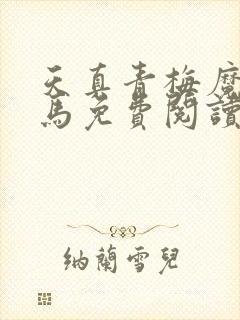 天真青梅魔
馬免費閱讀
納蘭雪兒